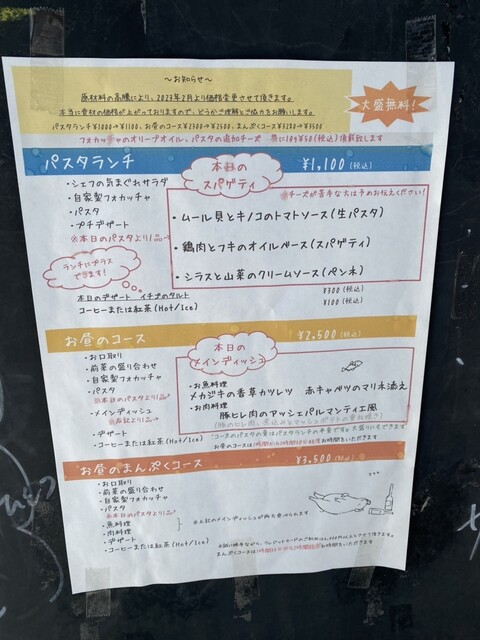 ～お知らせ～
原材料の高騰により、2023年2月より価格変更させて頂きます。
本当に食材の価格が上がっておりますので、どうかご理解とご協力をお願いします。
パスタランチ¥1000→¥1100、お昼のコース¥2300→¥2500、まんぷくコース¥3200→¥3500
フォカッチャのオリーブオイル、パスタの追加チーズ 共に10g¥50(税込)頂戴致します
大盛無料!
パスタランチ
¥1,100(税込)
・シェフの気まぐれサラダ
・自家製フォカッチャ
・パスタ
・プチデザート
※本日のパスタより1品→
本日の
スパゲティ
※チーズが苦手な方は予めお伝えください!
・ムール貝とキノコのトマトソース(生パスタ)
・鶏肉とフキのオイルベース(スパゲティ)
・シラスと山菜のクリームソース(ペンネ)
ランチにプラス
できます!
本日のデザート イチゴのタルト
¥300(税込)
コーヒーまたは紅茶(Hot/Ice)
¥100(税込)
お昼のコース
¥2,500(税込)
・お口取り
・前菜の盛り合わせ
・自家製フォカッチャ
・パスタ
※本日のパスタより1品
・メインディッシュ
※右記より1品
・デザート
・コーヒーまたは紅茶(Hot/Ice)
本日の
メインディッシュ
・お魚料理
メカジキの香草カツレツ 赤キャベツのマリネ添え
・お肉料理
豚ヒレ肉のアッシェパルマンティエ風
コースのパスタの量はパスタランチの半量です
お昼のまんぷくコース
¥3,500(税込)
・お口取り
・前菜の盛り合わせ
・自家製フォカッチャ
・パスタ
※本日のパスタより1品
・魚料理
・肉料理
・デザート
・コーヒーまたは紅茶(Hot/Ice)
※上記のメインディッシュが両方食べられます